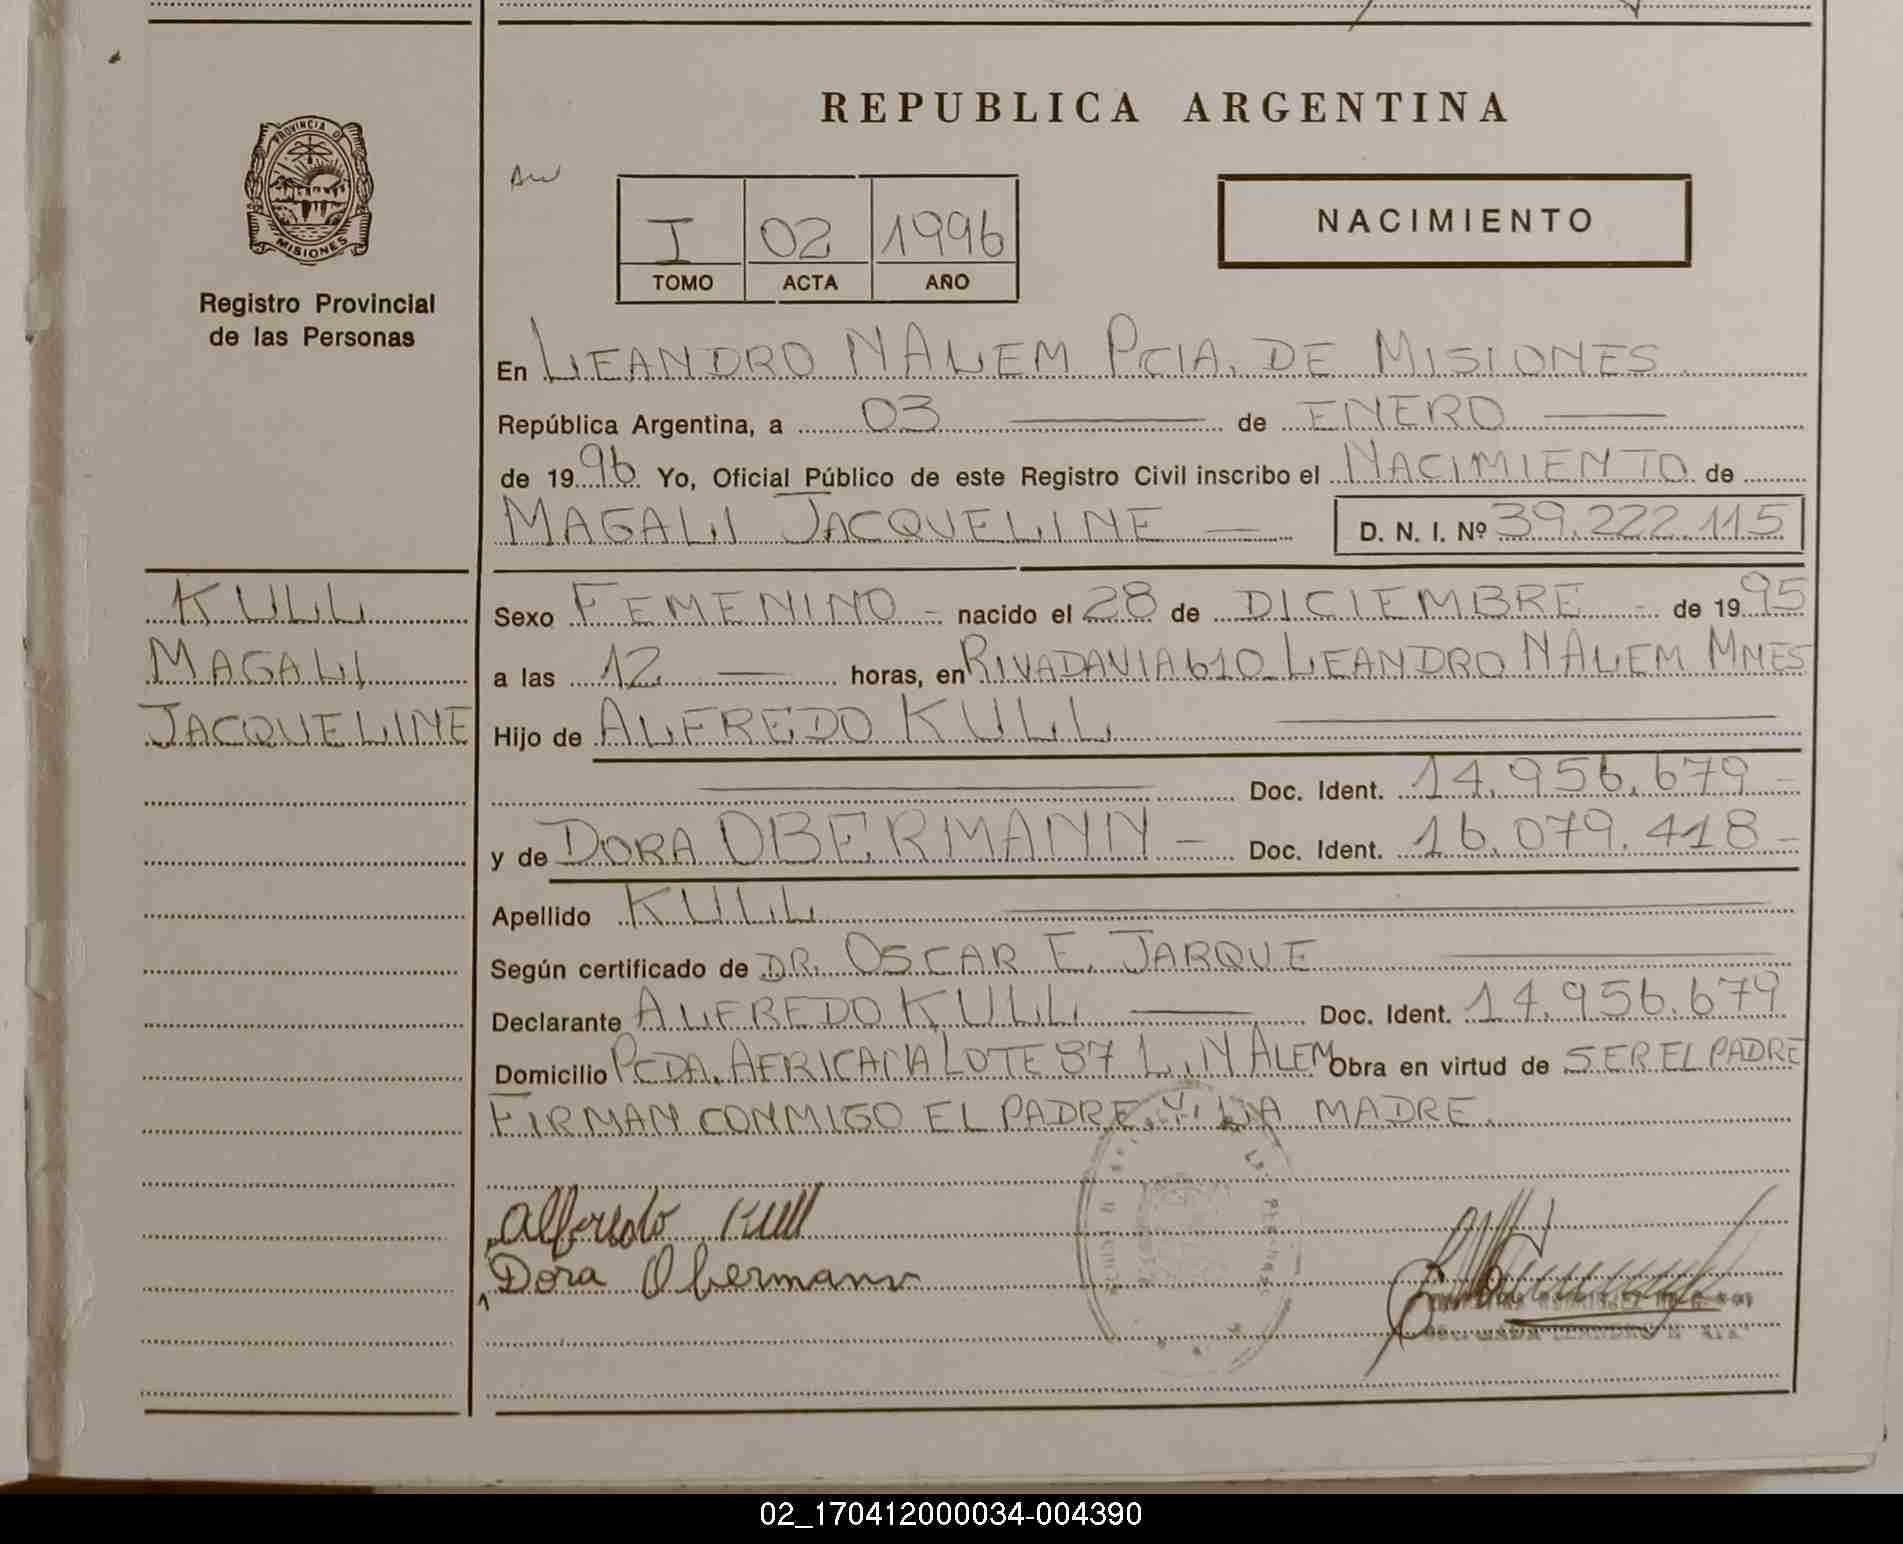 REPUBLICA ARGENTINA
PROVINCIA DE
MISIONES
Registro Provincial
de las Personas
I 02 1996
TOMO ACTA AÑO
NACIMIENTO
En LEANDRO N ALEM PCIA. DE MISIONES
República Argentina, a 03 de ENERO
de 1996 Yo, Oficial Público de este Registro Civil inscribo el NACIMIENTO de
MAGALI JACQUELINE D. N. I. Nº 39.222.115
KULL
MAGALI
JACQUELINE
Sexo FEMENINO - nacido el 28 de DICIEMBRE - de 1995
a las 12 horas, en RIVADAVIA 610 LEANDRO N ALEM MNES
Hijo de ALFREDO KULL
Doc. Ident. 14.956.679 -
y de DORA OBERMANN - Doc. Ident. 16.079.418 -
Apellido KULL
Según certificado de DR. OSCAR E. JARQUE
Declarante ALFREDO KULL Doc. Ident. 14.956.679
Domicilio PCDA. AFRICANA LOTE 87 L. N ALEM Obra en virtud de SER EL PADRE
FIRMAN CONMIGO EL PADRE Y LA MADRE.
Alfredo Kull
Dora Obermann
02_170412000034-004390